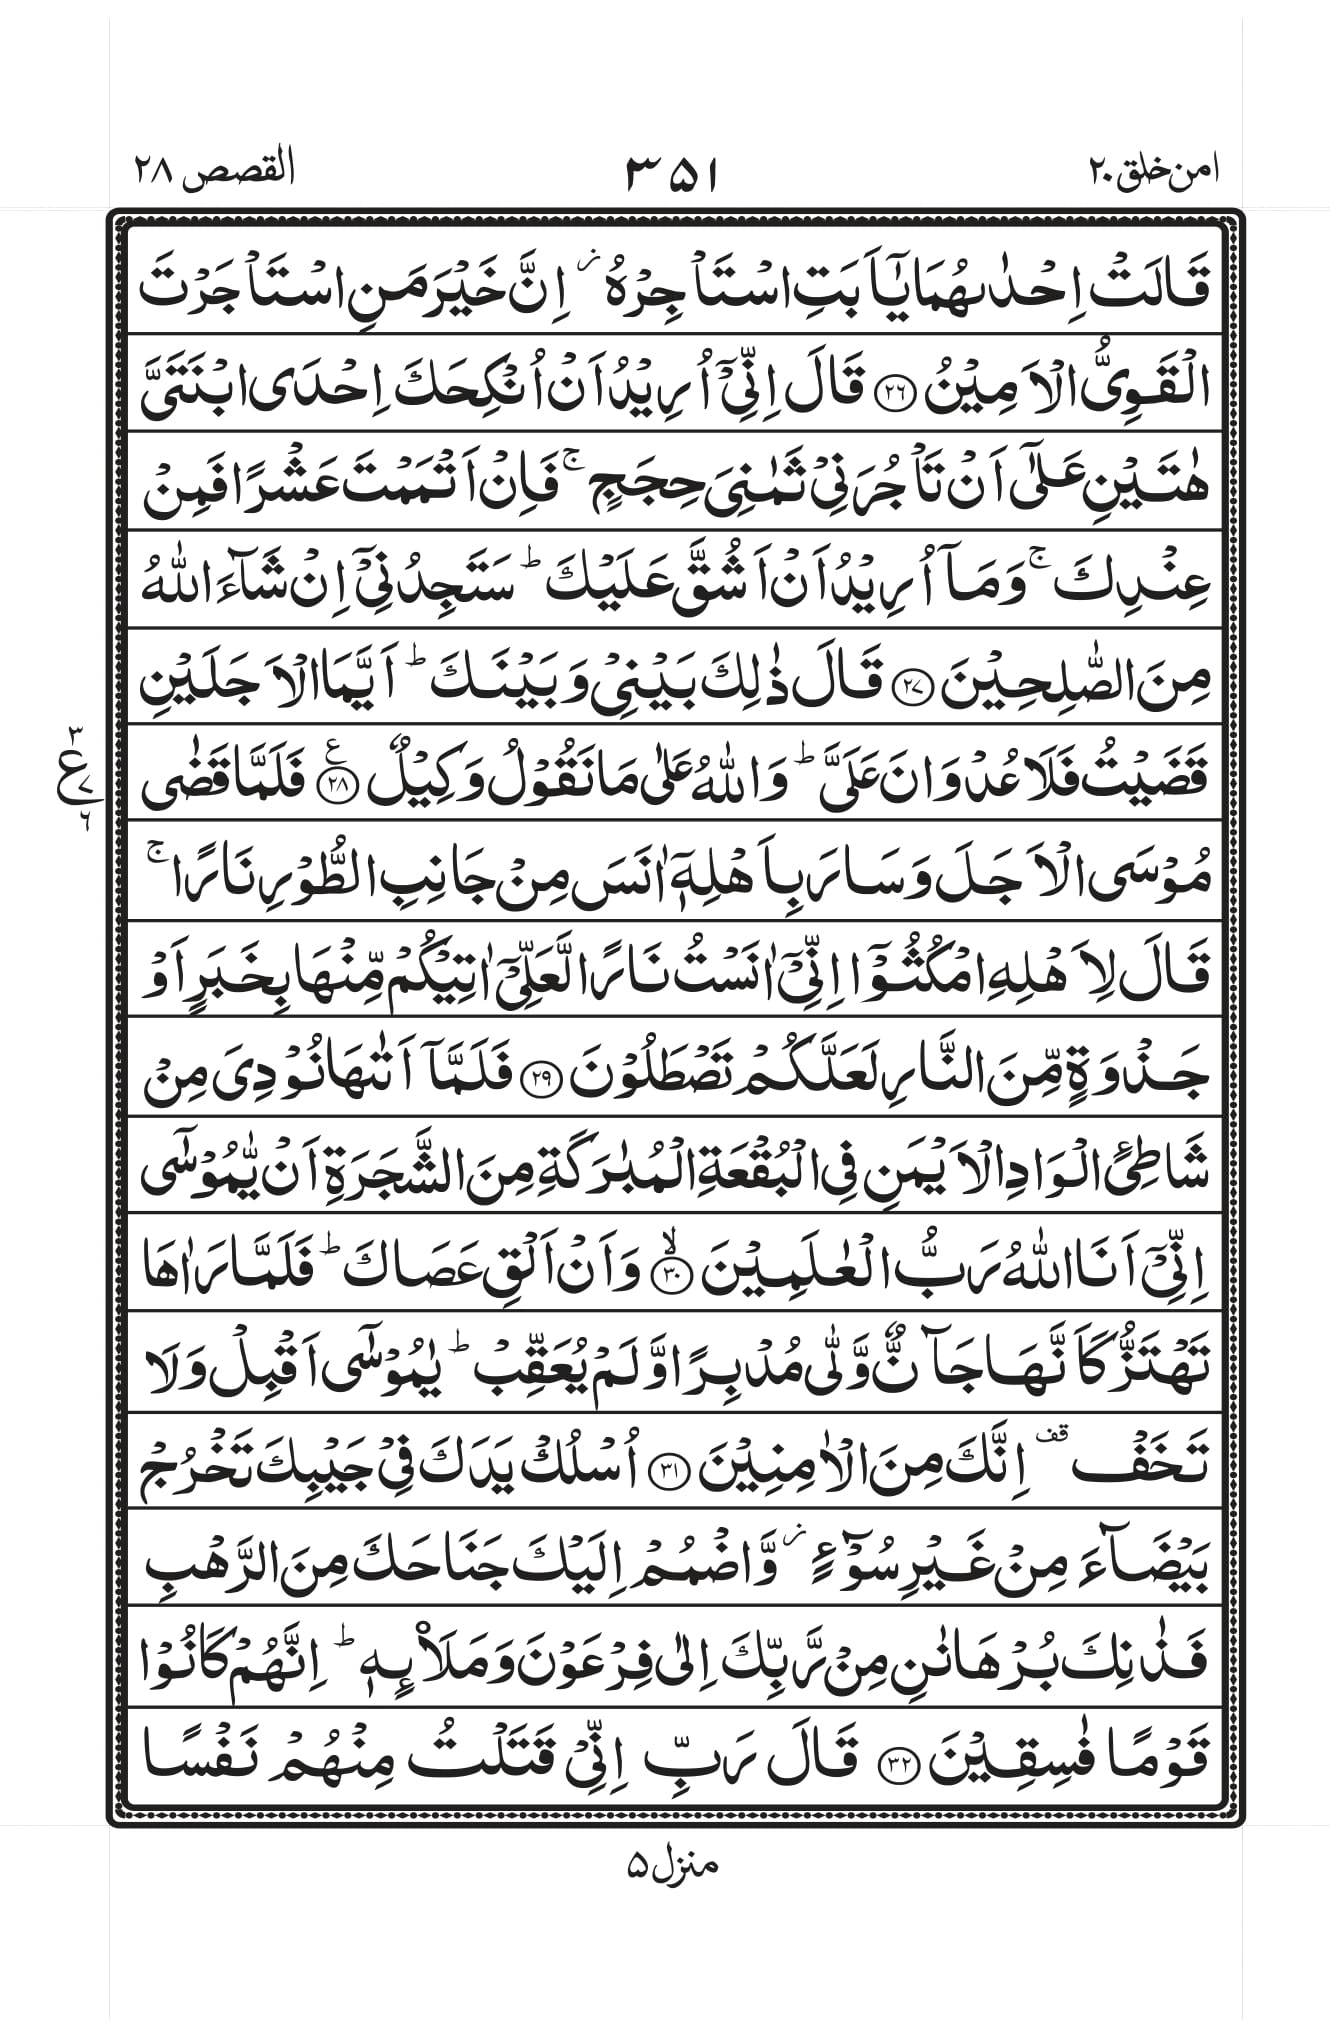 امن خلق ٢٠ ٣۵١ القصص ٢٨
قَالَتْ اِحْدٰىهُمَا يٰۤاَبَتِ اسْتَاْجِرْهُ ز اِنَّ خَيْرَ مَنِ اسْتَاْجَرْتَ
الْقَوِيُّ الْاَمِيْنُ ﴿٢٦﴾ قَالَ اِنِّيْۤ اُرِيْدُ اَنْ اُنْكِحَكَ اِحْدَى ابْنَتَيَّ
هٰتَيْنِ عَلٰۤى اَنْ تَاْجُرَنِيْ ثَمٰنِيَ حِجَجٍ ۚ فَاِنْ اَتْمَمْتَ عَشْرًا فَمِنْ
عِنْدِكَ ۚ وَمَاۤ اُرِيْدُ اَنْ اَشُقَّ عَلَيْكَ ؕ سَتَجِدُنِيْۤ اِنْ شَآءَ اللّٰهُ
مِنَ الصّٰلِحِيْنَ ﴿٢٧﴾ قَالَ ذٰلِكَ بَيْنِيْ وَبَيْنَكَ ؕ اَيَّمَا الْاَجَلَيْنِ
قَضَيْتُ فَلَا عُدْوَانَ عَلَيَّ ؕ وَاللّٰهُ عَلٰى مَا نَقُوْلُ وَكِيْلٌ ﴿٢٨﴾ ع فَلَمَّا قَضٰى
٣
ع ٧
٦
مُوْسَى الْاَجَلَ وَسَارَ بِاَهْلِهٖۤ اٰنَسَ مِنْ جَانِبِ الطُّوْرِ نَارًا ۚ
قَالَ لِاَهْلِهِ امْكُثُوْۤا اِنِّيْۤ اٰنَسْتُ نَارًا لَّعَلِّيْۤ اٰتِيْكُمْ مِّنْهَا بِخَبَرٍ اَوْ
جَذْوَةٍ مِّنَ النَّارِ لَعَلَّكُمْ تَصْطَلُوْنَ ﴿٢٩﴾ فَلَمَّاۤ اَتٰىهَا نُوْدِيَ مِنْ
شَاطِئِ الْوَادِ الْاَيْمَنِ فِي الْبُقْعَةِ الْمُبٰرَكَةِ مِنَ الشَّجَرَةِ اَنْ يّٰمُوْسٰۤى
اِنِّيْۤ اَنَا اللّٰهُ رَبُّ الْعٰلَمِيْنَ ﴿٣٠﴾ ۙ وَاَنْ اَلْقِ عَصَاكَ ؕ فَلَمَّا رَاٰهَا
تَهْتَزُّ كَاَنَّهَا جَآنٌّ وَّلّٰى مُدْبِرًا وَّلَمْ يُعَقِّبْ ؕ يٰمُوْسٰۤى اَقْبِلْ وَلَا
تَخَفْ قف اِنَّكَ مِنَ الْاٰمِنِيْنَ ﴿٣١﴾ اُسْلُكْ يَدَكَ فِيْ جَيْبِكَ تَخْرُجْ
بَيْضَآءَ مِنْ غَيْرِ سُوْٓءٍ ز وَّاضْمُمْ اِلَيْكَ جَنَاحَكَ مِنَ الرَّهْبِ
فَذٰنِكَ بُرْهَانٰنِ مِنْ رَّبِّكَ اِلٰى فِرْعَوْنَ وَمَلَا۟ئِهٖ ؕ اِنَّهُمْ كَانُوْا
قَوْمًا فٰسِقِيْنَ ﴿٣٢﴾ قَالَ رَبِّ اِنِّيْ قَتَلْتُ مِنْهُمْ نَفْسًا
منزل ۵